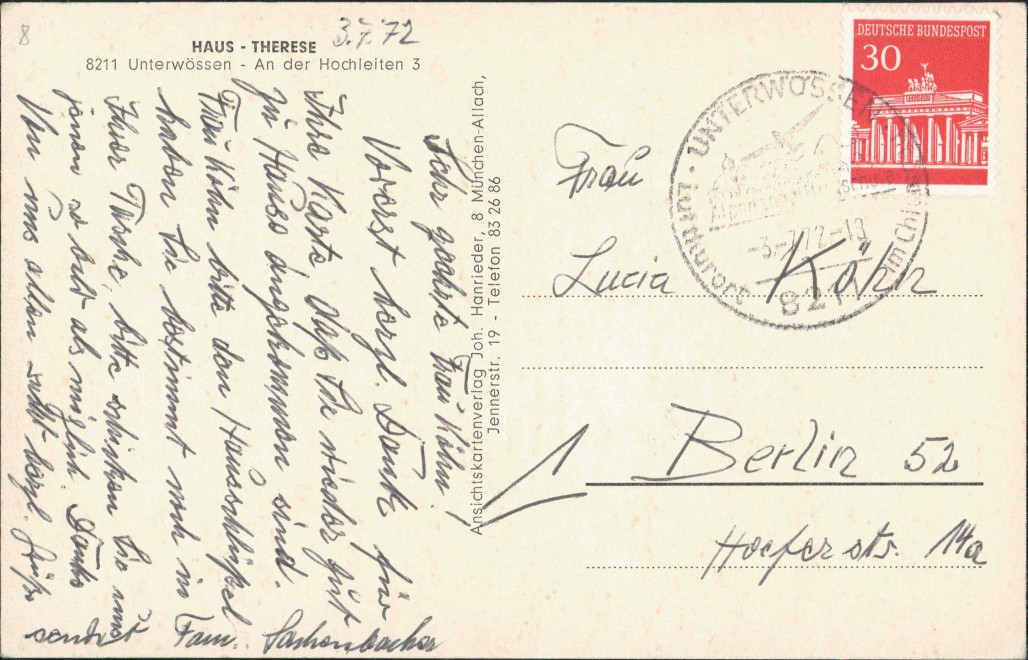 8
HAUS - THERESE
3.7.72
8211 Unterwössen - An der Hochleiten 3
Sehr geehrte Frau Köhn!
Vorerst herzl. Dank für
Ihre Karte, daß Sie wieder gut
zu Hause angekommen sind.
Frau Köhn bitte den Hausschlüssel
haben Sie bestimmt noch in
Ihrer Tasche, bitte schicken Sie uns
jenen so bald als möglich. Danke
Von uns allen recht herzl. Grüße
sendet Fam. Sachenbacher
Ansichtskartenverlag Joh. Hanrieder, 8 München-Allach,
Jennerstr. 19 - Telefon 83 26 86
DEUTSCHE BUNDESPOST
30
UNTERWÖSSEN
Luftkurort
im Chiem
-3.-7.72-19
8211
Frau
Lucia Köhn
Berlin 52
Hoeferstr. 14a